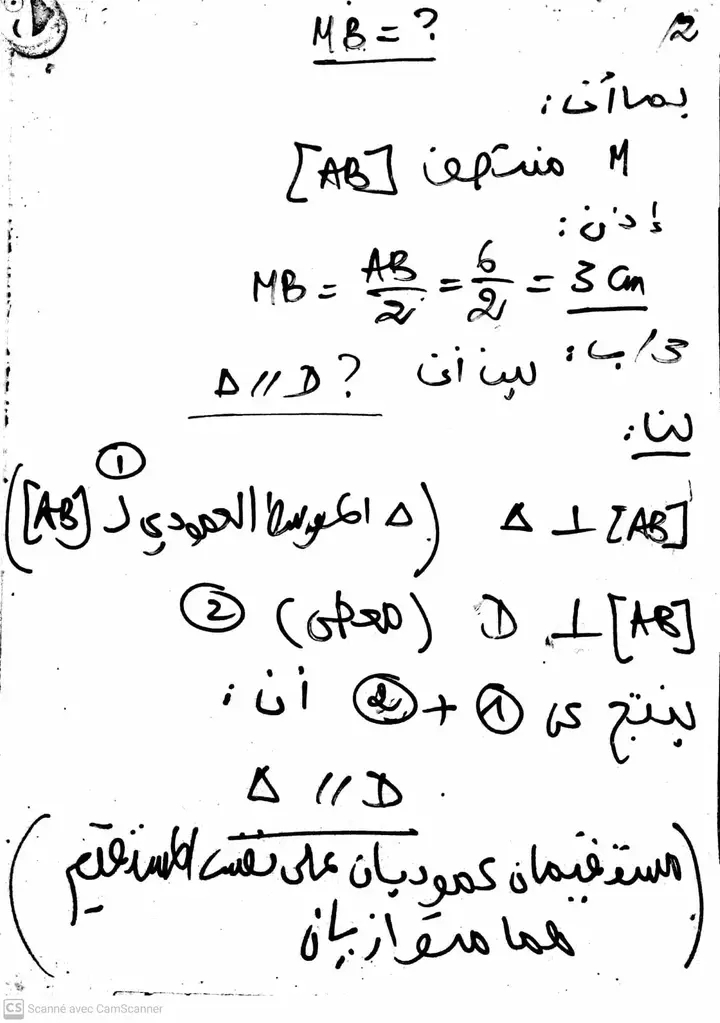 2/ MB = ?
بما أن:
M منتصف [AB]
إذن:
MB = AB/2 = 6/2 = 3 cm
3/ب: لنبين أن Δ // D ?
لنا:
Δ ⊥ [AB] (Δ الموسط العمودي لـ [AB]) ①
D ⊥ [AB] (معطى) ②
ينتج من ① + ② أن:
Δ // D
(مستقيمان عموديان على نفس المستقيم
هما متوازيان)
CS Scanné avec CamScanner